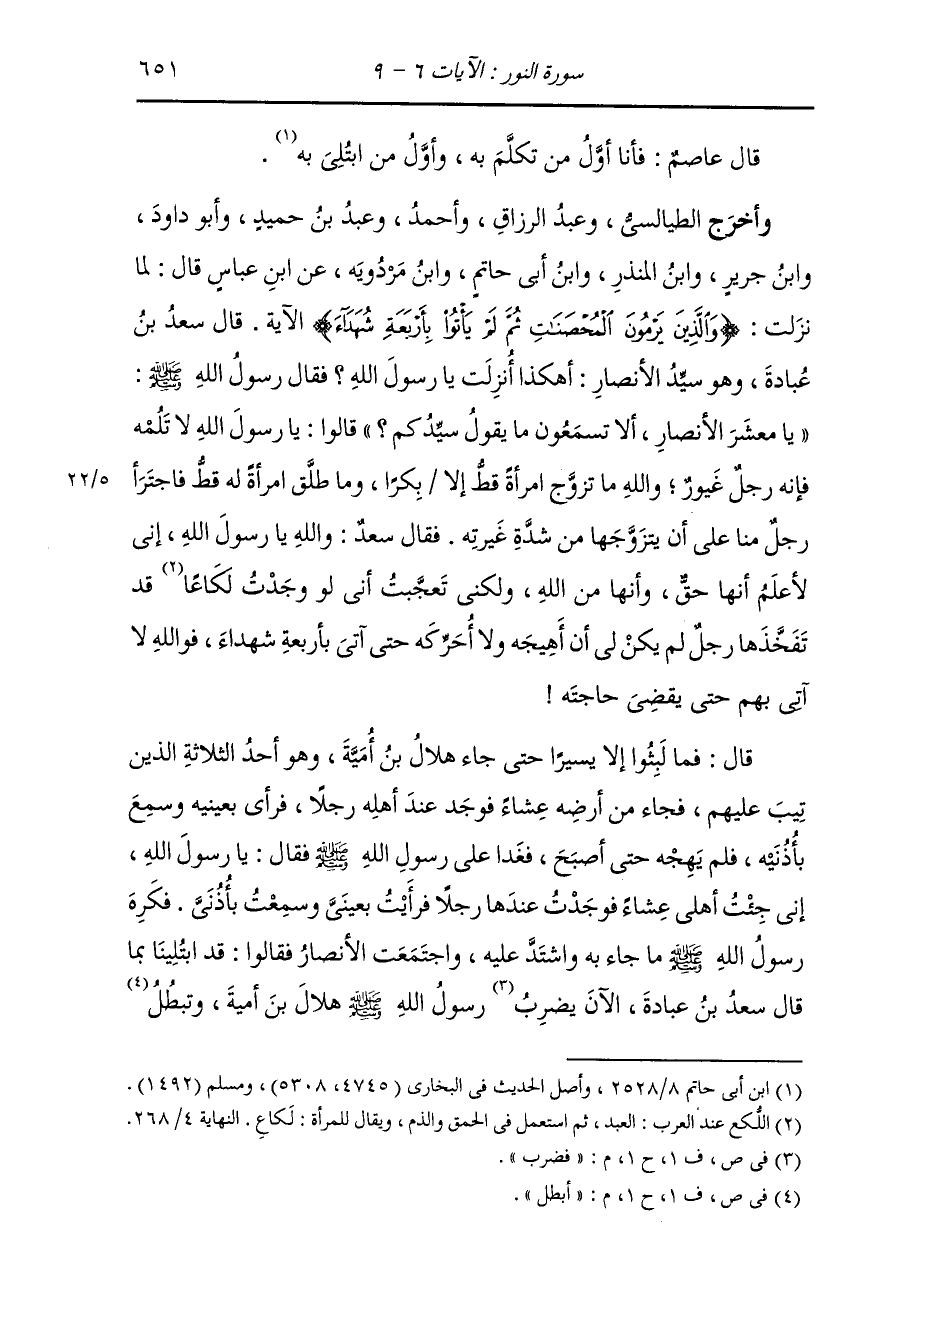 سورة النور : الآيات ٦ - ٩ ٦٥١
قال عاصمٌ : فأنا أوَّلُ من تكلَّمَ به ، وأوَّلُ من ابتُلِىَ به(١) .
وأخرَج الطيالسىُّ ، وعبدُ الرزاقِ ، وأحمدُ ، وعبدُ بنُ حميدٍ ، وأبو داودَ ،
وابنُ جريرٍ ، وابنُ المنذرِ ، وابنُ أبى حاتمٍ ، وابنُ مَرْدُويَه ، عن ابنِ عباسٍ قال : لما
نزَلت : ﴿وَٱلَّذِينَ يَرْمُونَ ٱلْمُحْصَنَٰتِ ثُمَّ لَمْ يَأْتُوا۟ بِأَرْبَعَةِ شُهَدَآءَ﴾ الآية . قال سعدُ بنُ
عُبادةَ ، وهو سيِّدُ الأنصارِ : أهكذا أُنزِلَت يا رسولَ اللهِ ؟ فقال رسولُ اللهِ ﷺ :
« يا معشَرَ الأنصارِ ، ألا تسمَعُون ما يقولُ سيِّدُكم ؟ » قالوا : يا رسولَ اللهِ لا تَلُمْه
فإنه رجلٌ غَيورٌ ؛ واللهِ ما تزوَّج امرأةً قطُّ إلا / بِكرًا ، وما طلَّق امرأةً له قطُّ فاجتَرَأ ٢٢/٥
رجلٌ منا على أن يتزَوَّجَها من شدَّةِ غَيرتِه . فقال سعدٌ : واللهِ يا رسولَ اللهِ ، إنى
لأعلَمُ أنها حقٌّ ، وأنها من اللهِ ، ولكنى تَعجَّبتُ أنى لو وجَدْتُ لَكَاعًا(٢) قد
تَفَخَّذَها رجلٌ لم يكنْ لى أن أَهِيجَه ولا أُحَرِّكَه حتى آتىَ بأربعةِ شهداءَ ، فواللهِ لا
آتِى بهم حتى يقضِىَ حاجتَه !
قال : فما لَبِثُوا إلا يسيرًا حتى جاء هلالُ بنُ أُمَيَّةَ ، وهو أحدُ الثلاثةِ الذين
تِيبَ عليهم ، فجاء من أرضِه عِشاءً فوجَد عندَ أهلِه رجلًا ، فرأى بعينيه وسمِعَ
بأُذُنَيْه ، فلم يَهِجْه حتى أصبَحَ ، فغَدا على رسولِ اللهِ ﷺ فقال : يا رسولَ اللهِ ،
إنى جِئْتُ أهلى عِشاءً فوجَدْتُ عندَها رجلًا فرأَيْتُ بعينَىَّ وسمِعْتُ بأُذُنَىَّ . فكَرِهَ
رسولُ اللهِ ﷺ ما جاء به واشتَدَّ عليه ، واجتَمَعَت الأنصارُ فقالوا : قد ابتُلِينَا بما
قال سعدُ بنُ عبادةَ ، الآنَ يضرِبُ(٣) رسولُ اللهِ ﷺ هلالَ بنَ أميةَ ، وتبطُلُ(٤)
(١) ابن أبى حاتم ٢٥٢٨/٨ ، وأصل الحديث فى البخارى (٤٧٤٥، ٥٣٠٨) ، ومسلم (١٤٩٢) .
(٢) اللُّكع عند العرب : العبد ، ثم استعمل فى الحمق والذم ، ويقال للمرأة : لَكاعِ . النهاية ٤/ ٢٦٨.
(٣) فى ص ، ف ١، ح ١، م : « فضرب » .
(٤) فى ص ، ف ١، ح ١، م : « أبطل » .